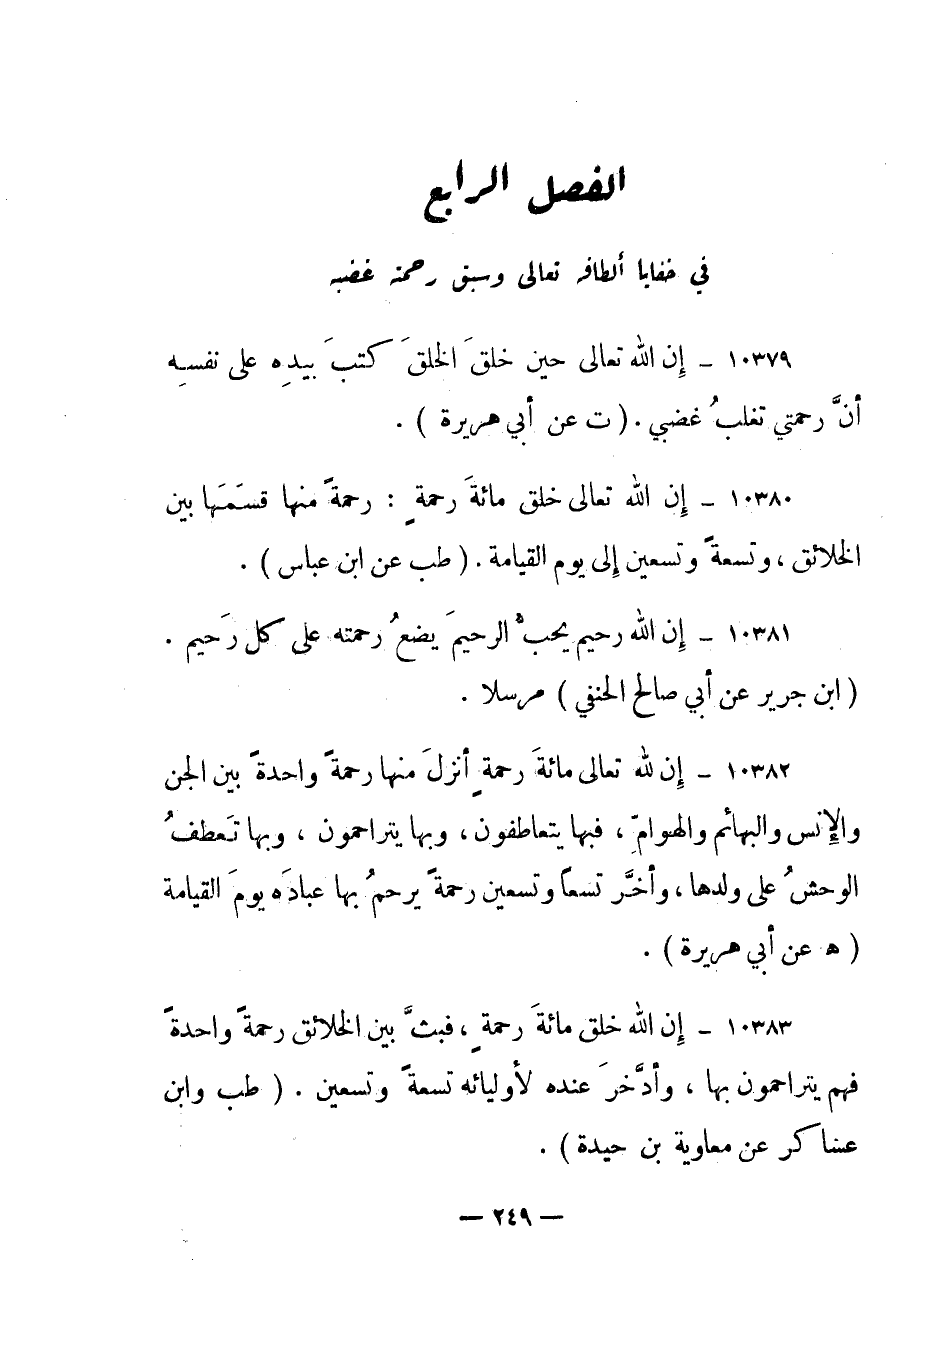 الفصل الرابع
في خفايا ألطافه تعالى وسبق رحمته غضبه
١٠٣٧٩ ــ إِن الله تعالى حين خلقَ الخلقَ كتبَ بيدِه على نفسِه
أنَّ رحمتي تغلبُ غضبي . ( ت عن أبي هريرة ) .
١٠٣٨٠ ــ إِن الله تعالى خلق مائةَ رحمةٍ : رحمةً منها قسَمَها بين
الخلائق ، وتسعةً وتسعين إِلى يوم القيامة . ( طب عن ابن عباس ) .
١٠٣٨١ ــ إِن الله رحيم يحبُّ الرحيمَ يضعُ رحمته على كل رَحيم .
( ابن جرير عن أبي صالح الحنفي ) مرسلا .
١٠٣٨٢ ــ إِن لله تعالى مائةَ رحمةٍ أنزلَ منها رحمةً واحدةً بين الجن
والإِنس والبهائم والهوامِّ ، فبها يتعاطفون ، وبها يتراحمون ، وبها تَعطفُ
الوحشُ على ولدها ، وأخَّر تسعاً وتسعين رحمةً يرحمُ بها عبادَه يومَ القيامة
( ه عن أبي هريرة ) .
١٠٣٨٣ ــ إِن الله خلق مائةَ رحمةٍ ، فبثَّ بين الخلائق رحمةً واحدةً
فهم يتراحمون بها ، وأدَّخرَ عنده لأوليائه تسعةً وتسعين . ( طب وابن
عساكر عن معاوية بن حيدة ) .
— ٢٤٩ —